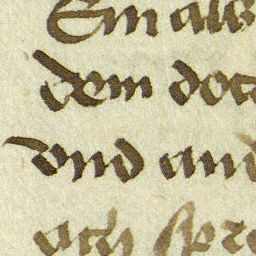 Ein als
dem doc
vnd and
ach spre